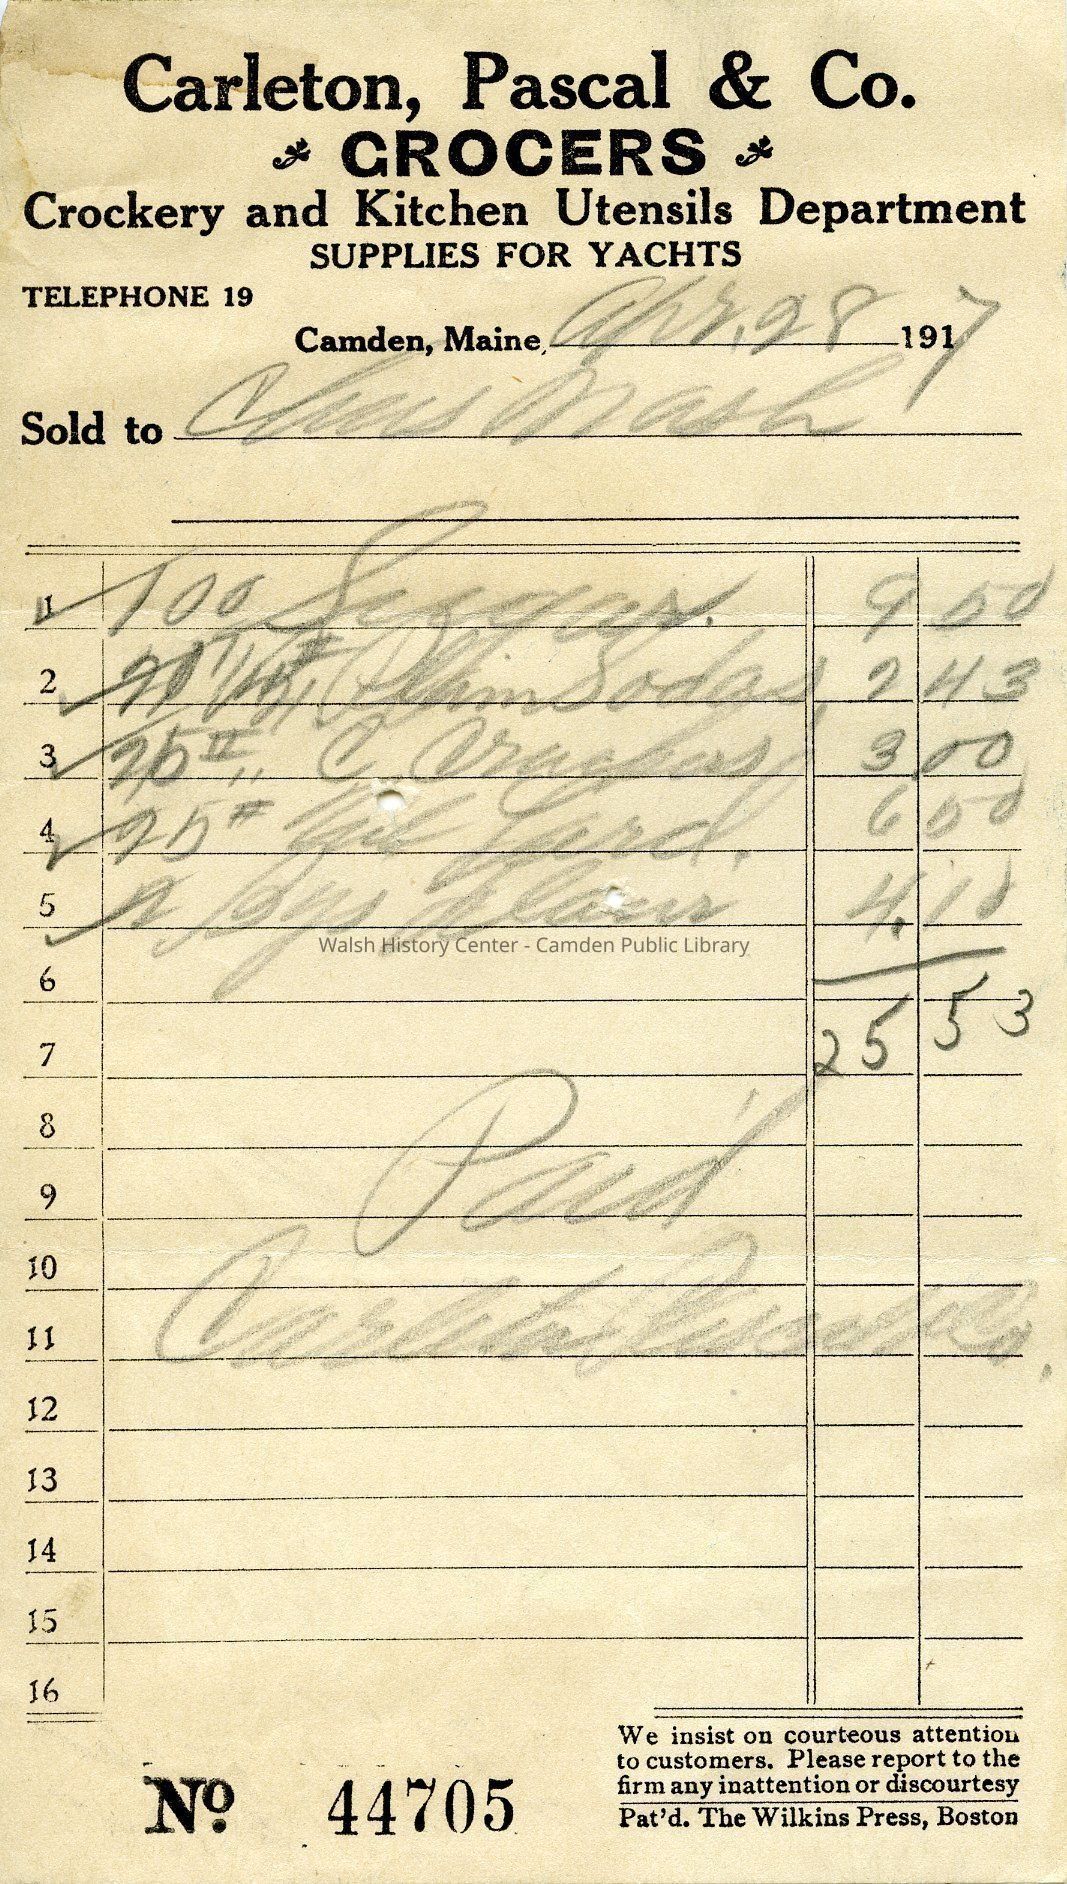 Carleton, Pascal & Co.
GROCERS
Crockery and Kitchen Utensils Department
SUPPLIES FOR YACHTS
TELEPHONE 19
Camden, Maine, Apr. 28 1917
Sold to Chas Nash
1 100 Suggar. 9 50
2 Plain Sodas 2 43
3 25 # C. Crackers 3 00
4 25 # Lard. 6 50
5 2 Bgs Flour 4.10
Walsh History Center - Camden Public Library
6
25 53
7
8
Paid
9
10
Carleton Pascal & Co.
11
12
13
14
15
16
We insist on courteous attention
to customers. Please report to the
firm any inattention or discourtesy
No. 44705
Pat'd. The Wilkins Press, Boston